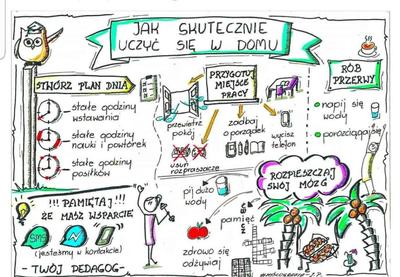 JAK SKUTECZNIE
UCZYĆ SIĘ W DOMU
STWÓRZ PLAN DNIA
stałe godziny
wstawania
stałe godziny
nauki i powtórek
stałe godziny
posiłków
PRZYGOTUJ
MIEJSCE
PRACY
przewietrz
pokój
zadbaj
o porządek
wycisz
telefon
usuń
rozpraszacze
RÓB
PRZERWY
napij się
wody
porozciągaj się
!!! PAMIĘTAJ !!!
ŻE MASZ WSPARCIE
SMS
(jesteśmy w kontakcie)
- TWÓJ PEDAGOG -
pij dużo
wody
zdrowo się
odżywiaj
pamięć
ROZPIESZCZAJ
SWÓJ MÓZG